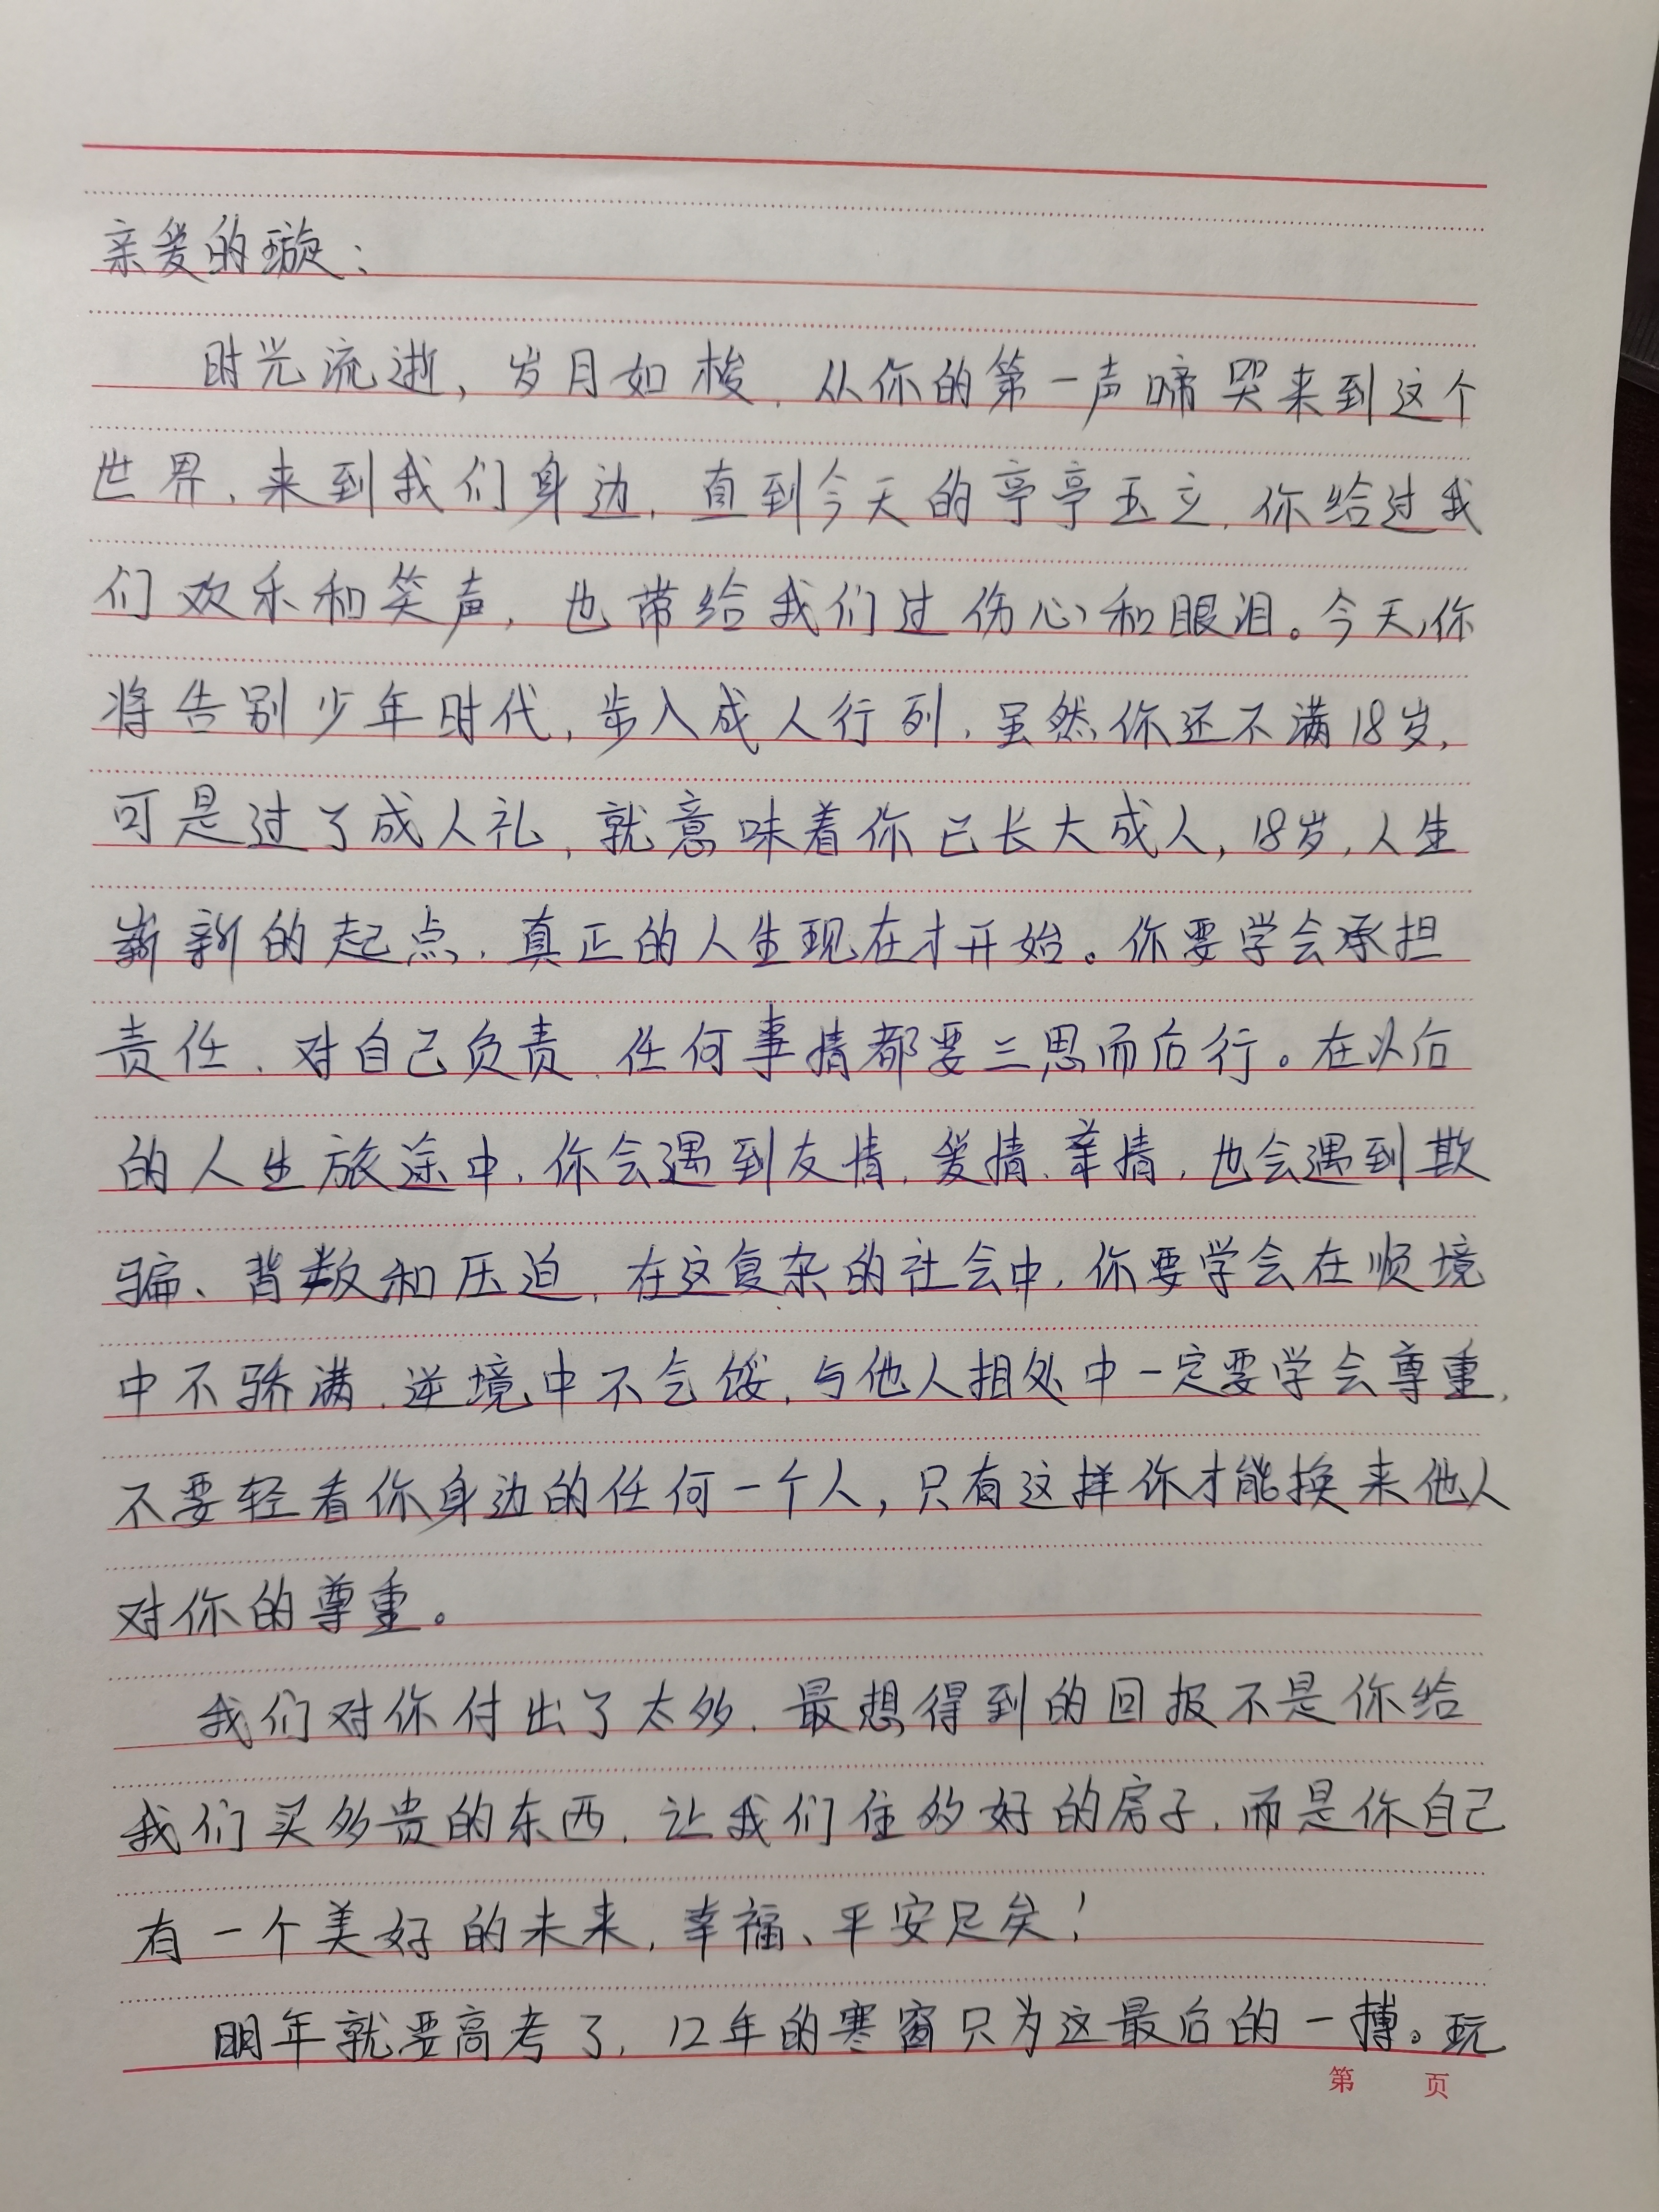 亲爱的璇：
时光流逝，岁月如梭，从你的第一声啼哭来到这个
世界，来到我们身边，直到今天的亭亭玉立，你给过我
们欢乐和笑声，也带给我们过伤心和眼泪。今天，你
将告别少年时代，步入成人行列，虽然你还不满18岁，
可是过了成人礼，就意味着你已长大成人，18岁，人生
崭新的起点，真正的人生现在才开始。你要学会承担
责任、对自己负责，任何事情都要三思而后行。在以后
的人生旅途中，你会遇到友情，爱情、亲情，也会遇到欺
骗、背叛和压迫，在这复杂的社会中，你要学会在顺境
中不骄满，逆境中不气馁，与他人相处中一定要学会尊重，
不要轻看你身边的任何一个人，只有这样你才能换来他人
对你的尊重。
我们对你付出了太多，最想得到的回报不是你给
我们买多贵的东西，让我们住多好的房子，而是你自己
有一个美好的未来，幸福、平安足矣！
明年就要高考了，12年的寒窗只为这最后的一搏。玩
第 页